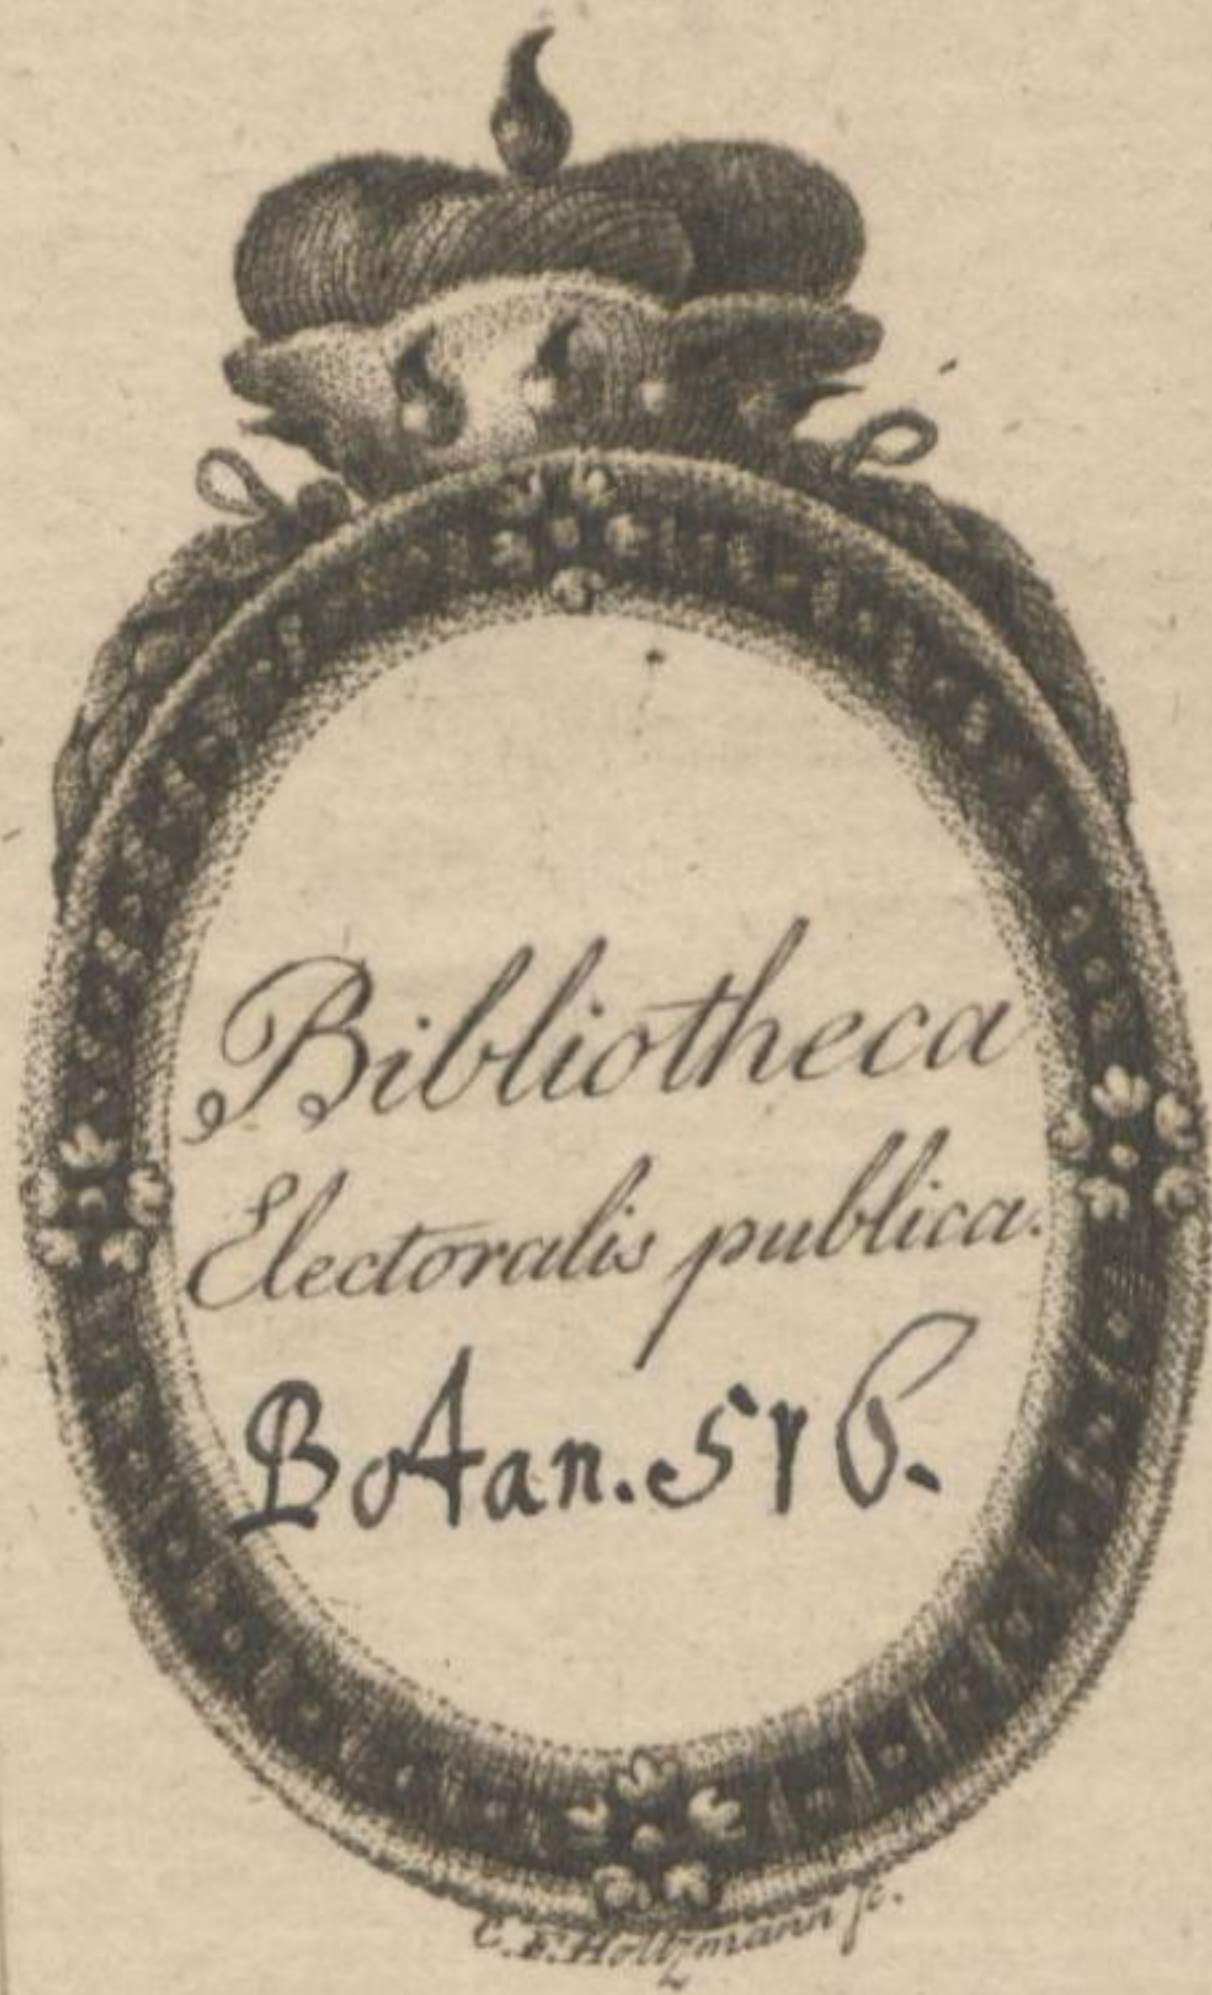 Bibliotheca
Electoralis publica.
Botan. 516.
C. F. Holtzmann sc.